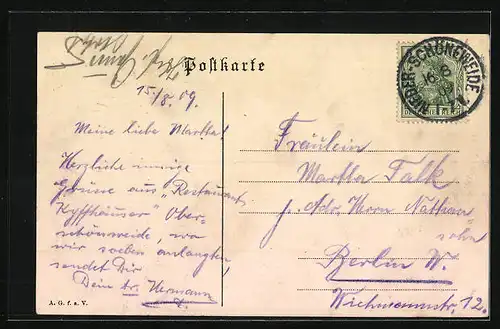 Postkarte
15/8. 09.
Meine liebe Martha!
Herzliche innige
Grüsse aus „Restaurant
Kyffhäuser" Ober-
schönweide, wo
wir soeben anlangten
sendet Dir
Dein tr. Hermann
A. G. f. a. V.
NIEDER-SCHÖNEWEIDE
Fräulein
Martha Falk
p. Adr. Herrn Nathan-
sohn
Berlin W.
Wichmannstr. 12.